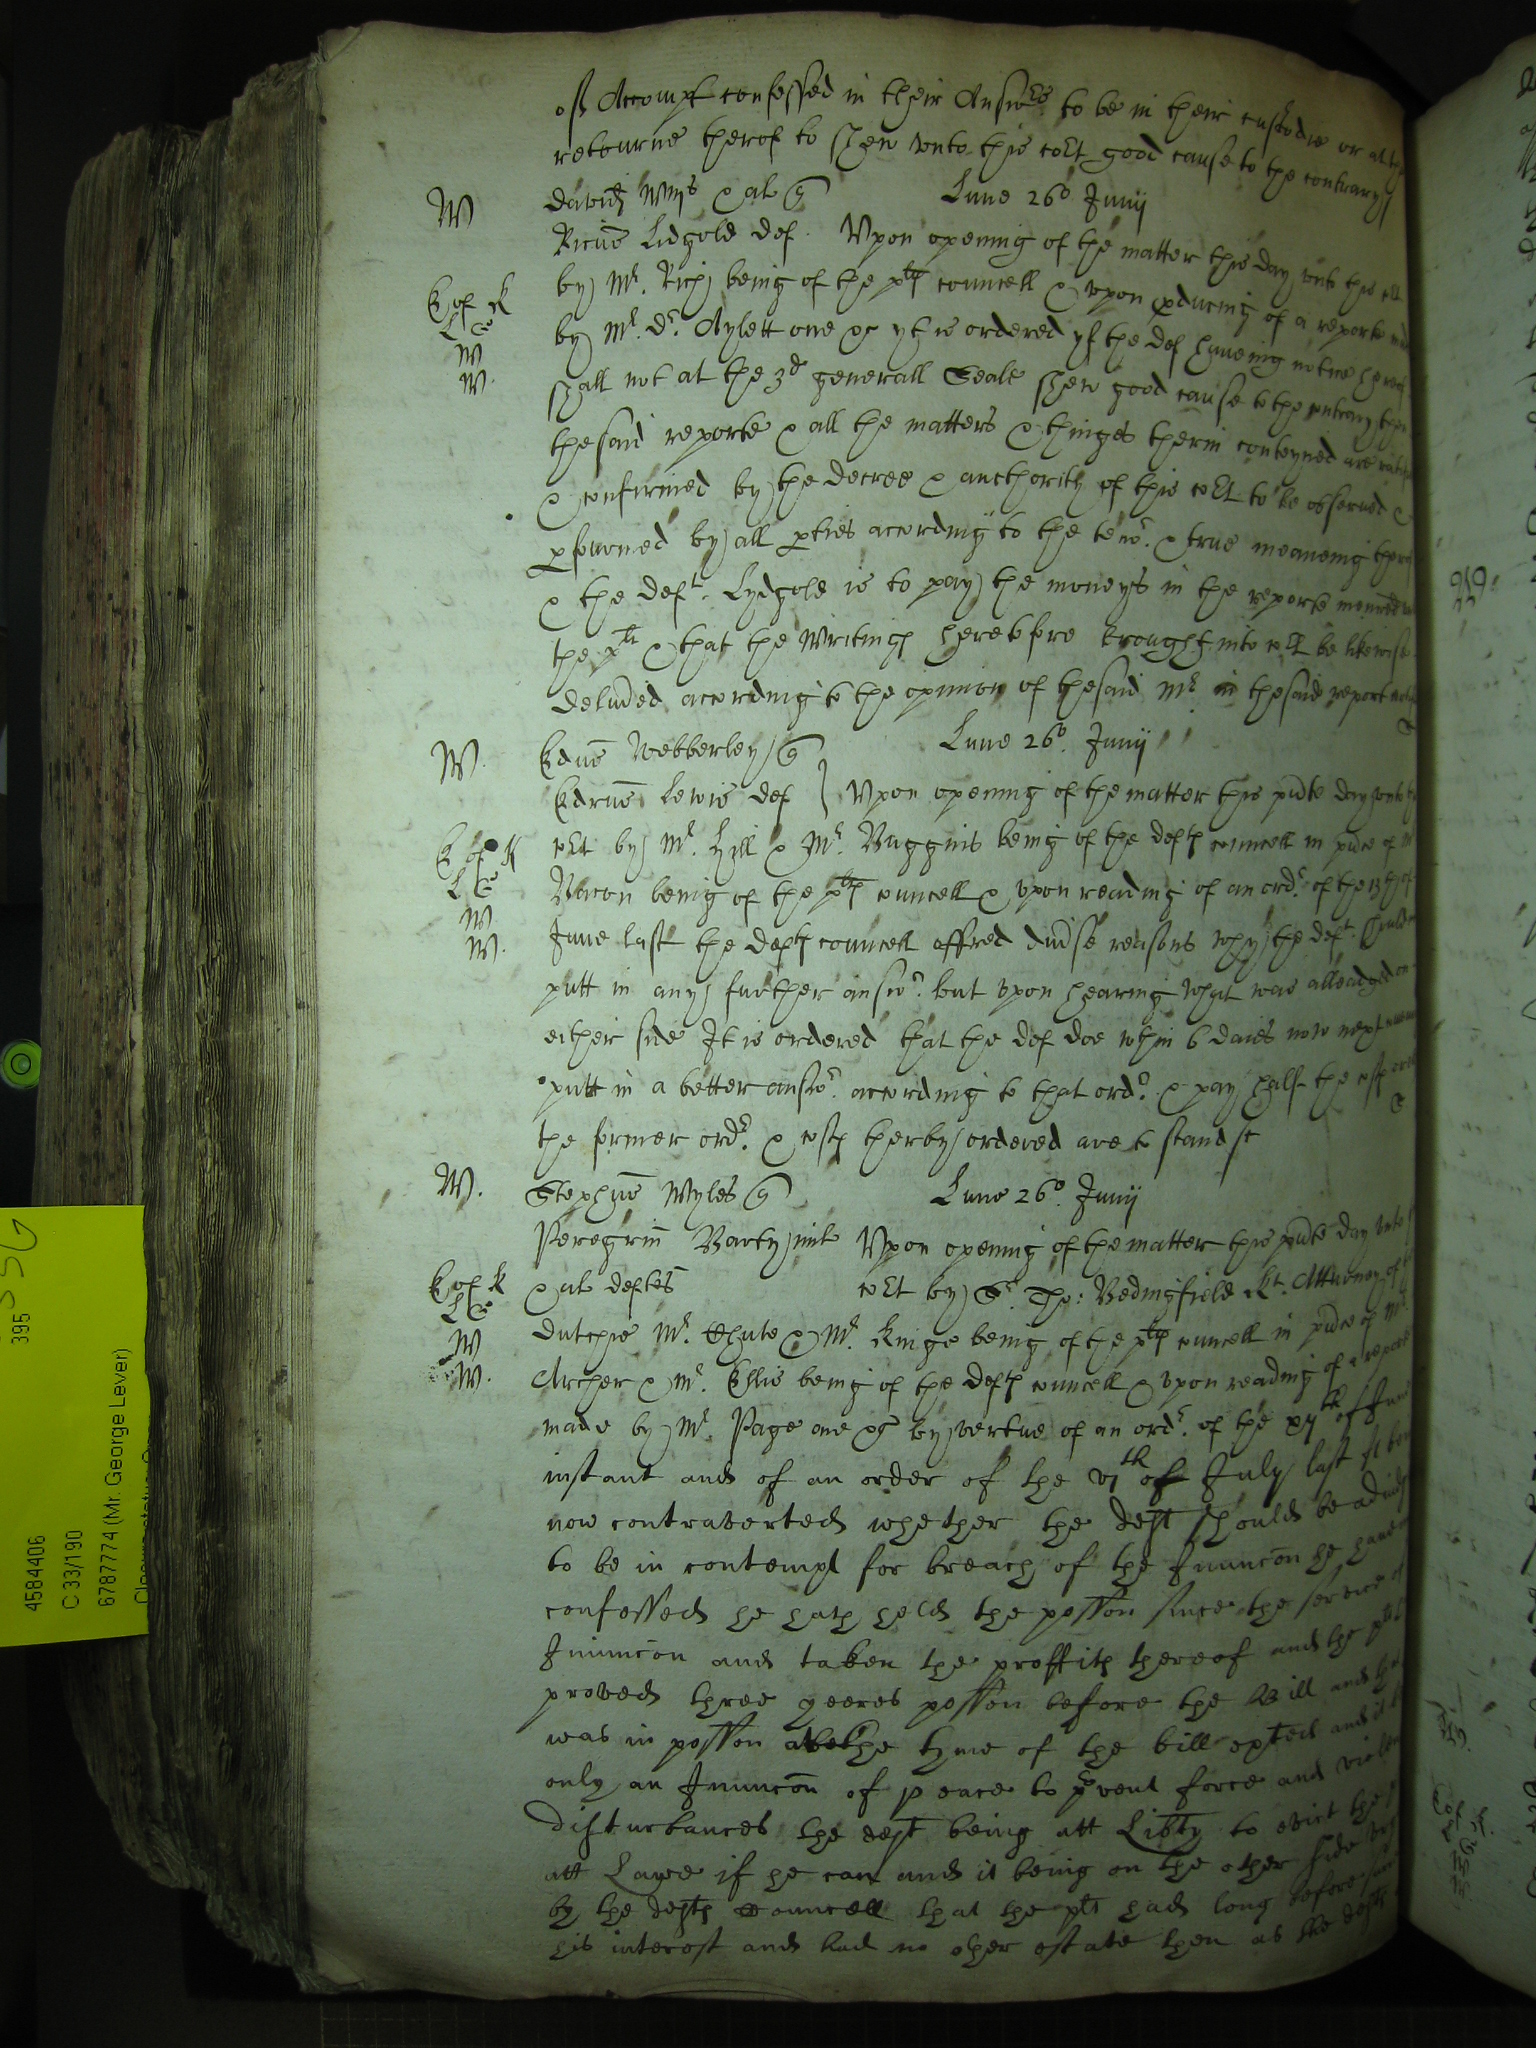 of Accompt confessed in their Answrs to be in their custodie or at the
retourne therof to shew vnto this cort good cause to the contrary
W David Wms & al q Lune 26o Junij
Ricus Lidgold def. Vpon opening of the matter this day vnto this cort
by Mr. Rich being of the pltes councell & vpon pducing of a reporte made
E of K
L Co
by Mr. Dr. Aylett one &c yt is ordered yf the def haueing notice hereof
W
W.
shall not at the 3d generall Seale shew good cause to the contrary then
thesaid reporte & all the matters & thinges therin conteyned are
& confirmed by the decree & aucthority of this cort to be obserued &
pformed by all pties according to the teno.r & true meaneing therof
& the deft. Lydgold is to pay the moneys in the reporte menced
the plt & that the writings heretofore brought into cort be likewise
deliued according to the opinion of thesaid Mr in thesaid report
W. Edus Webberley q Lune 26o. Junij
Edrus Lewis def Vpon opening of the matter this pnte day vnto
E of K
L Co
cort by Mr. Hill & Mr. Buggins being of the deftes councell in pnce of Mr
Bacon being of the pltes councell & vpon reading of an ordr. of the 13th of
W
W.
June last the deftes councell offred diuse reasons why the deft. should
putt in any further answr. but vpon hearing what was alleadged on
either side It is ordered that the def doe wthin 6 daies now next
putt in a better answr. according to that ordr. & pay half the costes
the former ordr. & costes therby ordered are to stand &c
W. Stephus Myles q Lune 26o. Junij
Peregrin Barty mil Vpon opening of the matter this pnte day vnto
E of K
L Co
& al deftes cort by Sr. Tho: Bedingfield Kt. Atturney of
Dutchie Mr. Chute & Mr. Kinge being of the pltes councell in pnce of Mr.
W
W.
Archer & Mr. Ellis being of the deftes councell & vpon reading of a reporte
made by Mr. Page one &c by vertue of an ordr. of the xijth of June
instant and of an order of the vjth of July last It being
now contraverted whether the deft should be
to be in contempt for breach of the Iniuncon he haue
confessed he hath held the possion since the service of
Iniuncon and taken the proffits thereof and the plt
proved three yeeres possion before the Bill and
was in possion at the tyme of the bill exhited and it
only an Iniuncon of peace to pvent force and
disturbances the deft being att Libty to evict the
att Lawe if he can and it being on the other side
by the defts councell that the plt had long before
his interest and had no other estate then as the defts
4584406
C 33/190
395
6787774 (Mr. George Lever)